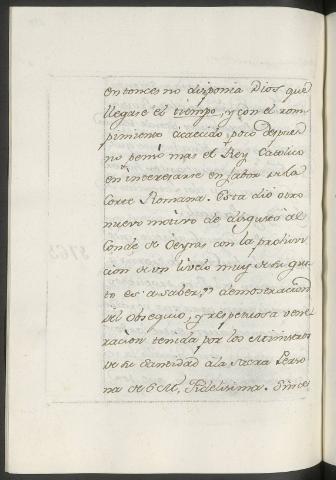 entonces no disponia Dios que
llegase el tiempo, y con el rom-
pimiento acaecido, poco despues
no pensó mas el Rey Catolico
en interesarse en fabor de la
Corte Romana. Esta dio otro
nuevo motivo de disgusto al
Conde de Oeyras con la prohivi-
cion de un livelo muy de su gus-
to es à saber, demostracion
del obsequio, y respetuosa vene-
racion tenida por los Ministros
de su Santidad à la Sacra Perso-
na de S. M. Fidelisima. Since